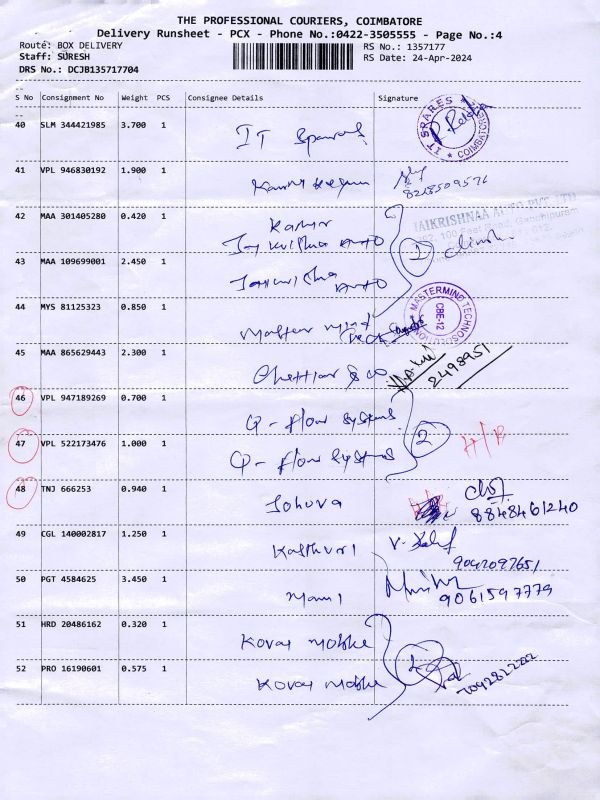 THE PROFESSIONAL COURIERS, COIMBATORE
Delivery Runsheet - PCX - Phone No.:0422-3505555 - Page No.:4
Route: BOX DELIVERY
RS No.: 1357177
Staff: SURESH
RS Date: 24-Apr-2024
DRS No.: DCJB135717704
S No Consignment No Weight PCS Consignee Details Signature
40 SLM 344421985 3.700 1 IT Spares
IT SPARES COIMBATORE
41 VPL 946830192 1.900 1
42 MAA 301405280 0.420 1
JAIKRISHNAA AUTO PVT. LTD
Jay Krishna Auto
43 MAA 109699001 2.450 1 Auto
44 MYS 81125323 0.850 1 Master mind
MASTERMIND TECHNOSOLUTION
CBE-12
45 MAA 865629443 2.300 1 Chettiar & co
2498951
46 VPL 947189269 0.700 1 Q - flow systems
47 VPL 522173476 1.000 1 Q - flow systems 2 H/B
48 TNJ 666253 0.940 1 Johova
8848461240
49 CGL 140002817 1.250 1 Kasthuri
9042097651
50 PGT 4584625 3.450 1 Mani
9061597779
51 HRD 20486162 0.320 1 Kovai mobile
52 PRO 16190601 0.575 1 Kovai mobile